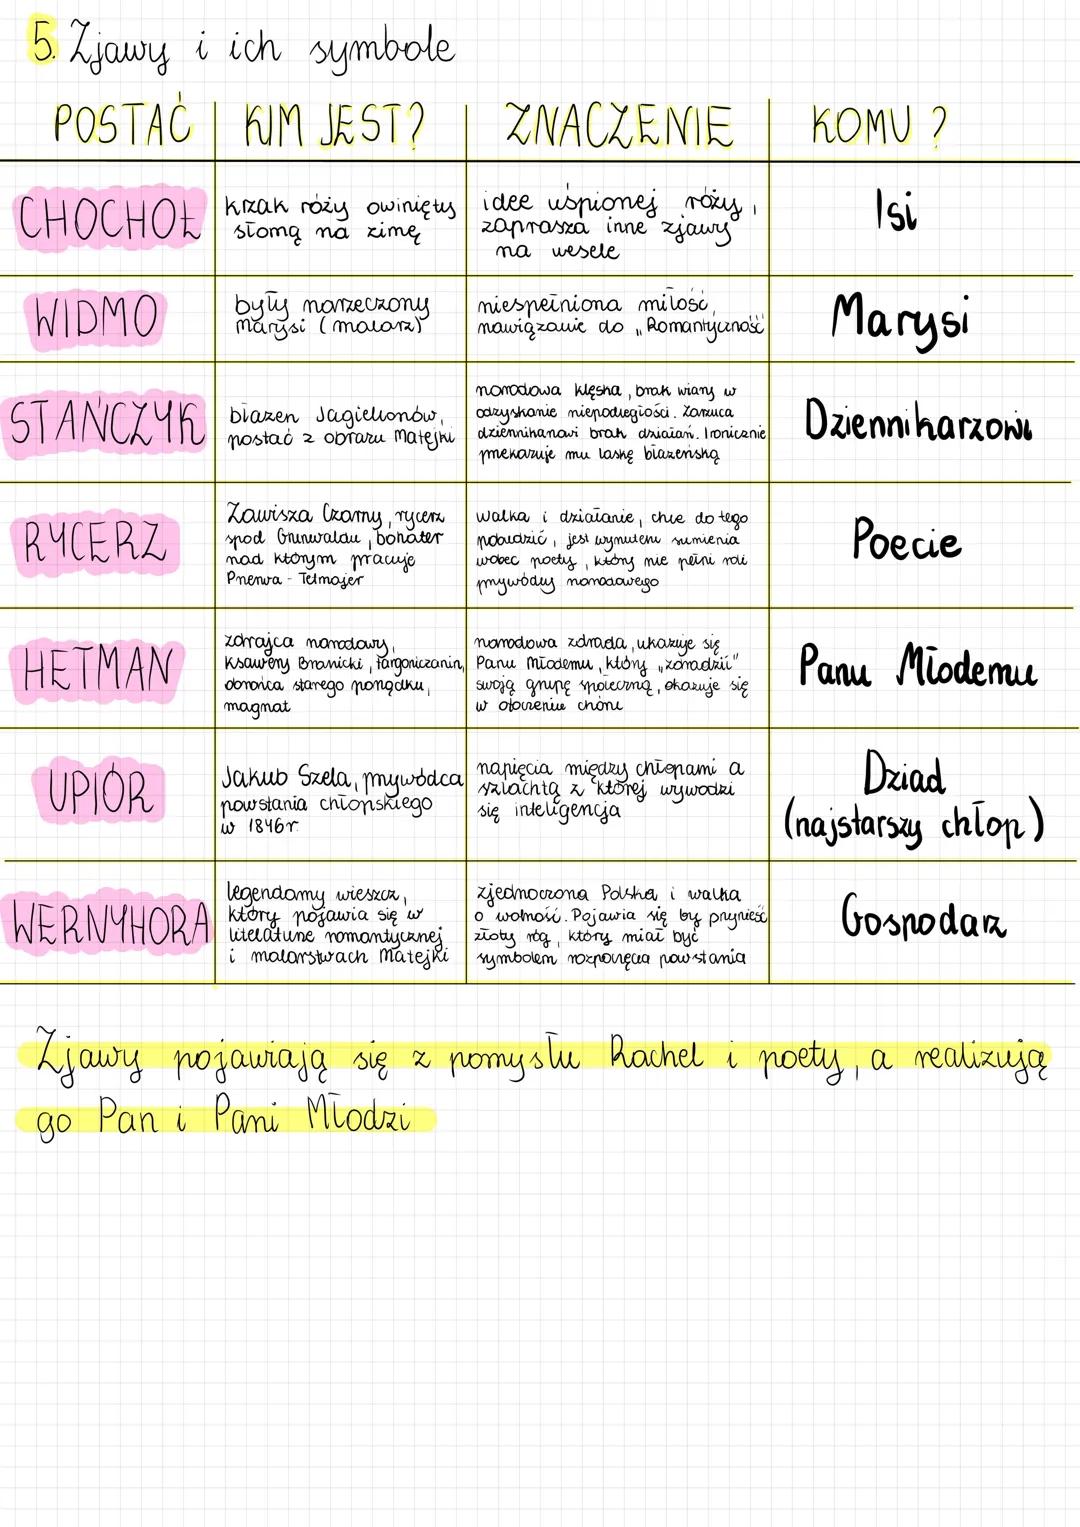 5. Zjawy i ich symbole
POSTAĆ KIM JEST? ZNACZENIE KOMU?
CHOCHOŁ
krzak róży owinięty
słomą na zimę
idee uśpionej róży,
zaprasza inne zjawy
na wesele
Isi
WIDMO
były narzeczony
Marysi (malarz)
niespełniona miłość,
nawiązanie do „Romantyczność"
Marysi
STAŃCZYK
błazen Jagiellonów,
postać z obrazu Matejki
narodowa klęska, brak wiary w
odzyskanie niepodległości. Zarzuca
dziennikarzowi brak działań. Ironicznie
przekazuje mu laskę błazeńską
Dziennikarzowi
RYCERZ
Zawisza Czarny, rycerz
spod Grunwaldu, bohater
nad którym pracuje
Przerwa - Tetmajer
walka i działanie, chce do tego
pobudzić, jest wyrzutem sumienia
wobec poety, który nie pełni roli
przywódcy narodowego
Poecie
HETMAN
zdrajca narodowy,
Ksawery Branicki, targowiczanin,
obrońca starego porządku,
magnat
narodowa zdrada, ukazuje się
Panu Młodemu, który „zdradził"
swoją grupę społeczną, okazuje się
w otoczeniu
Panu Młodemu
UPIÓR
Jakub Szela, przywódca
powstania chłopskiego
w 1846r.
napięcia między chłopami a
szlachtą z której wywodzi
się inteligencja
Dziad
(najstarszy chłop)
WERNYHORA
legendarny wieszcz,
który pojawia się w
literaturze romantycznej
i malarstwach Matejki
zjednoczona Polska i walka
o wolność. Pojawia się by przynieść
złoty róg, który miał być
symbolem rozpoczęcia powstania
Gospodarz
Zjawy pojawiają się z pomysłu Rachel i poety, a realizują
go Pan i Pani Młodzi